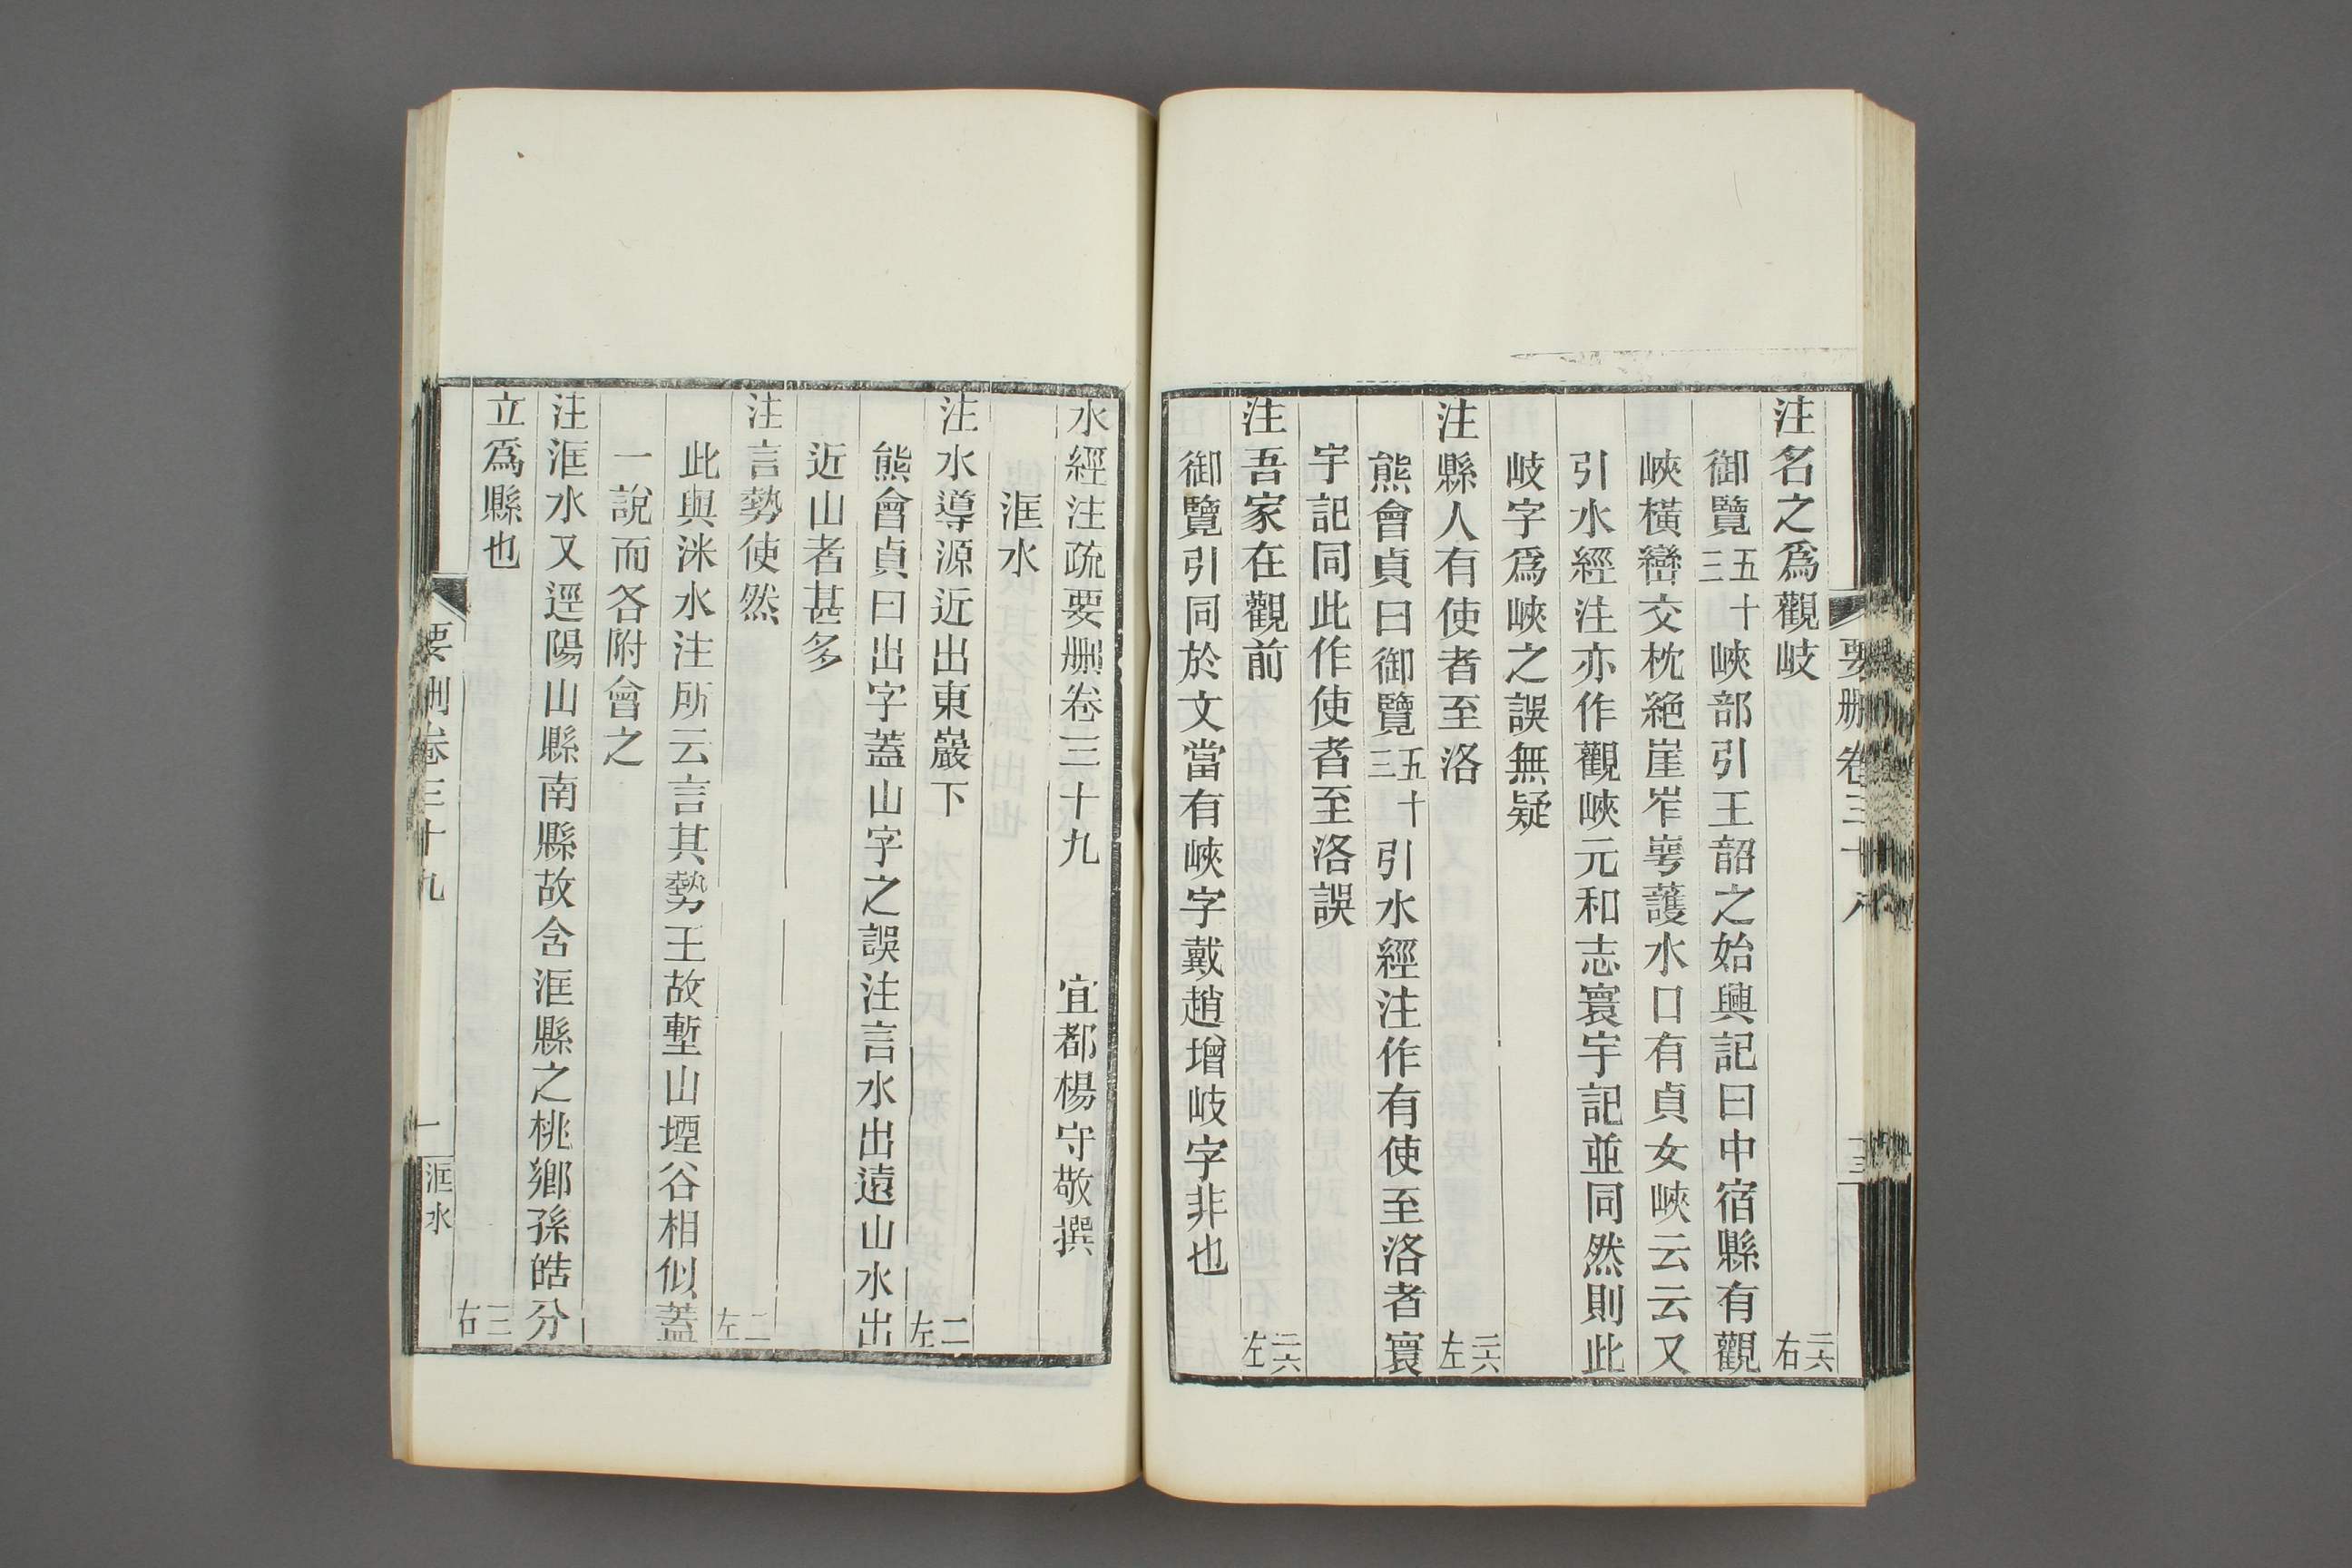 注名之爲觀岐 二六右
御覽五十三峽部引王韶之始興記曰中宿縣有觀
峽橫巒交枕絕崖岞崿䕶水口有貞女峽云云又
引水經注亦作觀峽元和志寰宇記並同然則此
岐字爲峽之誤無疑
注縣人有使者至洛 二六左
熊會貞曰御覽五十三引水經注作有使至洛者寰
宇記同此作使者至洛誤
注吾家在觀前 二六左
御覽引同於文當有峽字戴趙增岐字非也
要刪卷三十八
水經注疏要刪卷三十九 宜都楊守敬撰
洭水
注水導源近出東巖下 二左
熊會貞曰出字蓋山字之誤注言水出遠山水出
近山者甚多
注言勢使然 二左
此與洣水注所云言其勢王故塹山堙谷相似蓋
一說而各附會之
注洭水又逕陽山縣南縣故含洭縣之桃鄉孫皓分
立爲縣也 三右
要刪卷三十九 一 洭水